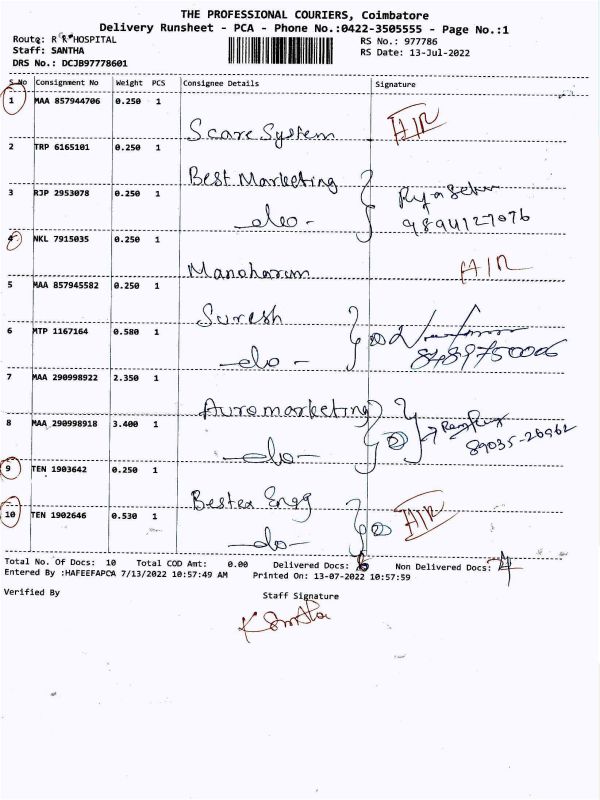 THE PROFESSIONAL COURIERS, Coimbatore
Delivery Runsheet - PCA - Phone No.:0422-3505555 - Page No.:1
Route: R R HOSPITAL
RS No.: 977786
Staff: SANTHA
RS Date: 13-Jul-2022
DRS No.: DCJB97778601
S.No Consignment No Weight PCS Consignee Details Signature
1 MAA 857944706 0.250 1
Scare System A/R
2 TRP 6165101 0.250 1
Best Marketing
3 RJP 2953078 0.250 1
-do- 9894127076
4 NKL 7915035 0.250 1
Manoharan A/R
5 MAA 857945582 0.250 1
Suresh
6 MTP 1167164 0.580 1
-do- ② 8489750006
7 MAA 290998922 2.350 1
Auromarketing
8 MAA 290998918 3.400 1
-do- ② 89035-26962
9 TEN 1903642 0.250 1
Bestex Engg A/R
10 TEN 1902646 0.530 1
-do- ②
Total No. Of Docs: 10 Total COD Amt: 0.00 Delivered Docs: 6 Non Delivered Docs: 4
Entered By :HAFEEFAPCA 7/13/2022 10:57:49 AM Printed On: 13-07-2022 10:57:59
Verified By Staff Signature
K Santha